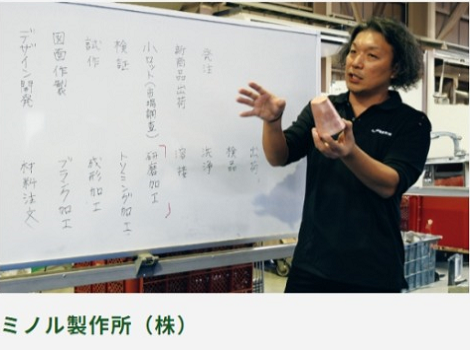 デザイン開発
図面作製
試作
検証
小ロット(市場調査)
新商品出荷
発注
材料注文
ブランク加工
成形加工
トリミング加工
研磨加工
溶接
洗浄
検品
出荷
ミノル製作所（株）